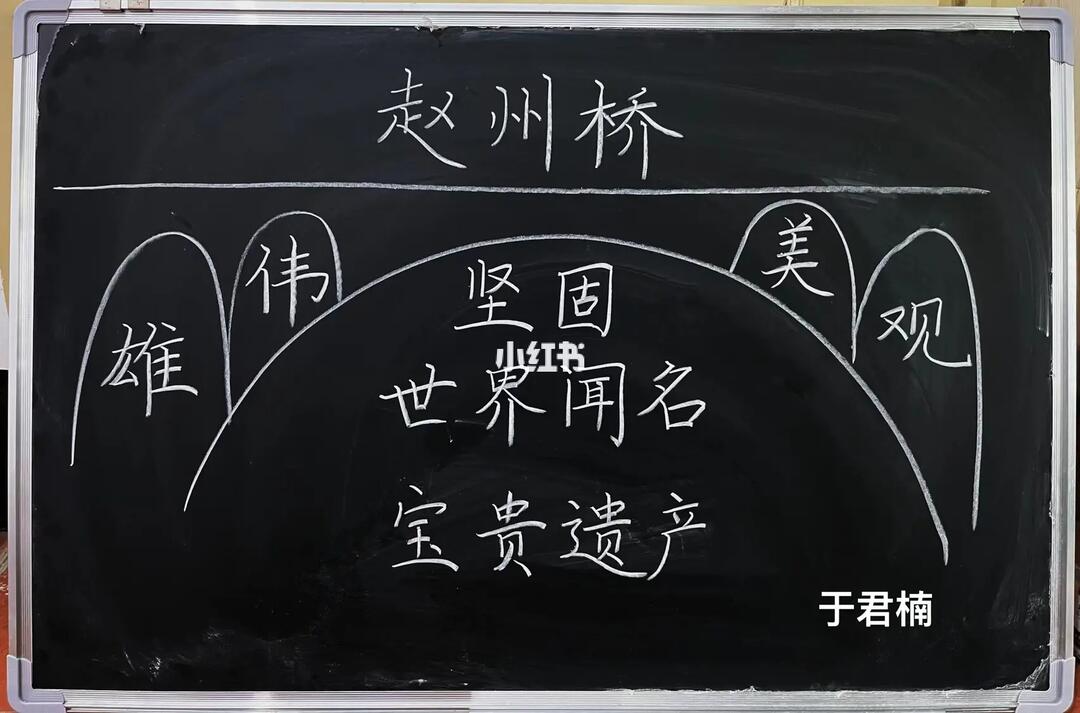 赵州桥
雄伟
美观
坚固
小红书
世界闻名
宝贵遗产
于君楠